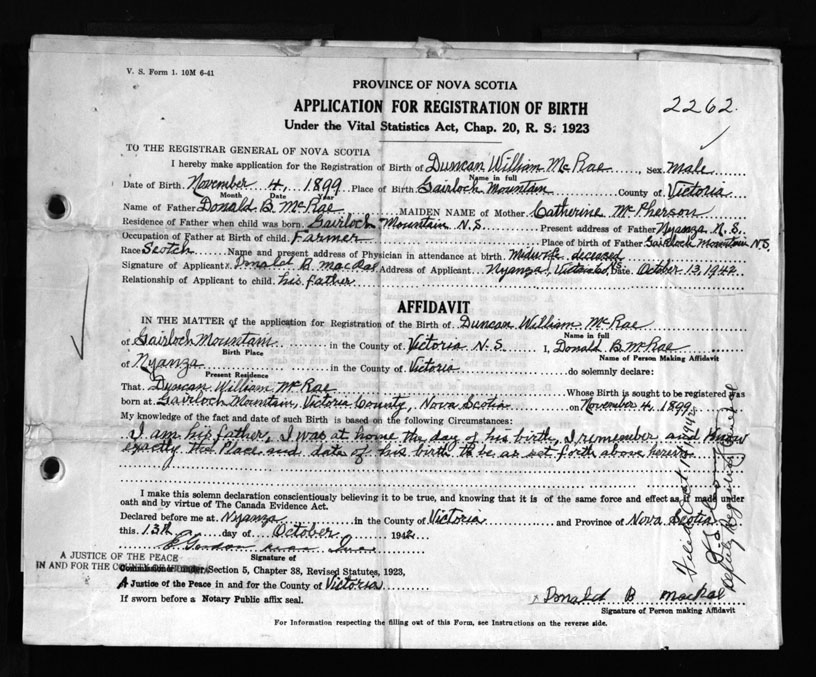 V. S. Form 1. 10M 6-41
PROVINCE OF NOVA SCOTIA
APPLICATION FOR REGISTRATION OF BIRTH
2262.
Under the Vital Statistics Act, Chap. 20, R. S. 1923
TO THE REGISTRAR GENERAL OF NOVA SCOTIA
I hereby make application for the Registration of Birth of Duncan William McRae, Sex Male
Name in full
Date of Birth. November 4, 1899 Place of Birth. Gairloch Mountain County of Victoria
Month Date Year
Name of Father Donald B. McRae MAIDEN NAME of Mother. Catherine McPherson
Residence of Father when child was born. Gairloch Mountain N.S. Present address of Father Nyanza N.S.
Occupation of Father at Birth of child. Farmer Place of birth of Father Gairloch Mountain N.S.
Race Scotch Name and present address of Physician in attendance at birth. Midwife deceased
Signature of Applicant x Donald B MacRae Address of Applicant Nyanza, Victoria Co. N.S. Date. October 13, 1942
Relationship of Applicant to child. his father
AFFIDAVIT
IN THE MATTER of the application for Registration of the Birth of Duncan William McRae
Name in full
of Gairloch Mountain in the County of Victoria N.S. I, Donald B. McRae
Birth Place Name of Person Making Affidavit
of Nyanza in the County of Victoria do solemnly declare:
Present Residence
That Duncan William McRae Whose Birth is sought to be registered was
born at Gairloch Mountain, Victoria County, Nova Scotia on November 4, 1899
My knowledge of the fact and date of such Birth is based on the following Circumstances:
I am his father, I was at home the day of his birth, I remember and know
exactly the Place and date of his birth to be as set forth above herein.
I make this solemn declaration conscientiously believing it to be true, and knowing that it is of the same force and effect as if made under
oath and by virtue of The Canada Evidence Act.
Declared before me at Nyanza in the County of Victoria and Province of Nova Scotia
this 13th day of October 1942
Gordon
A JUSTICE OF THE PEACE
Signature of
IN AND FOR THE COUNTY OF
Section 5, Chapter 38, Revised Statutes, 1923,
A Justice of the Peace in and for the County of Victoria
If sworn before a Notary Public affix seal.
x Donald B MacRae
Signature of Person making Affidavit
For Information respecting the filling out of this Form, see Instructions on the reverse side.
Filed Oct 1942
Deputy Registrar General